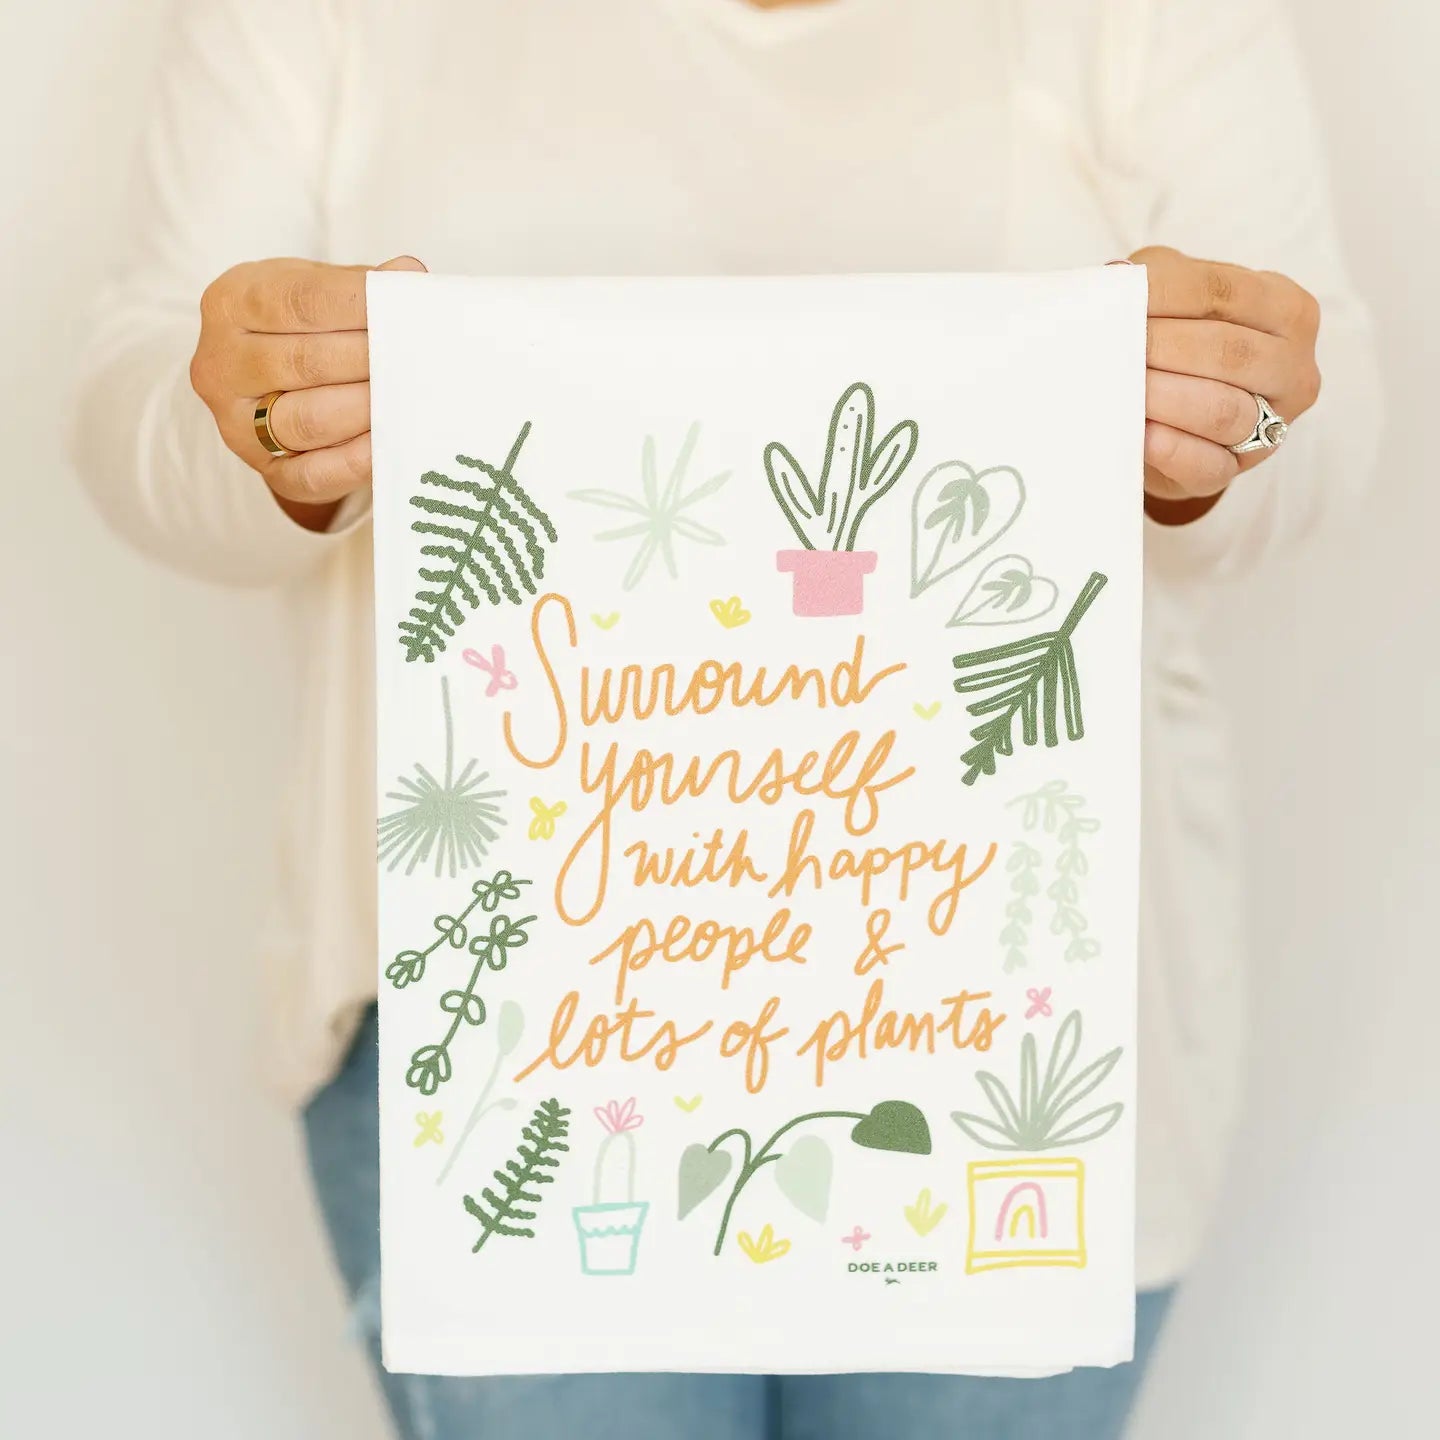 Surround
yourself
with happy
people &
lots of plants
DOE A DEER